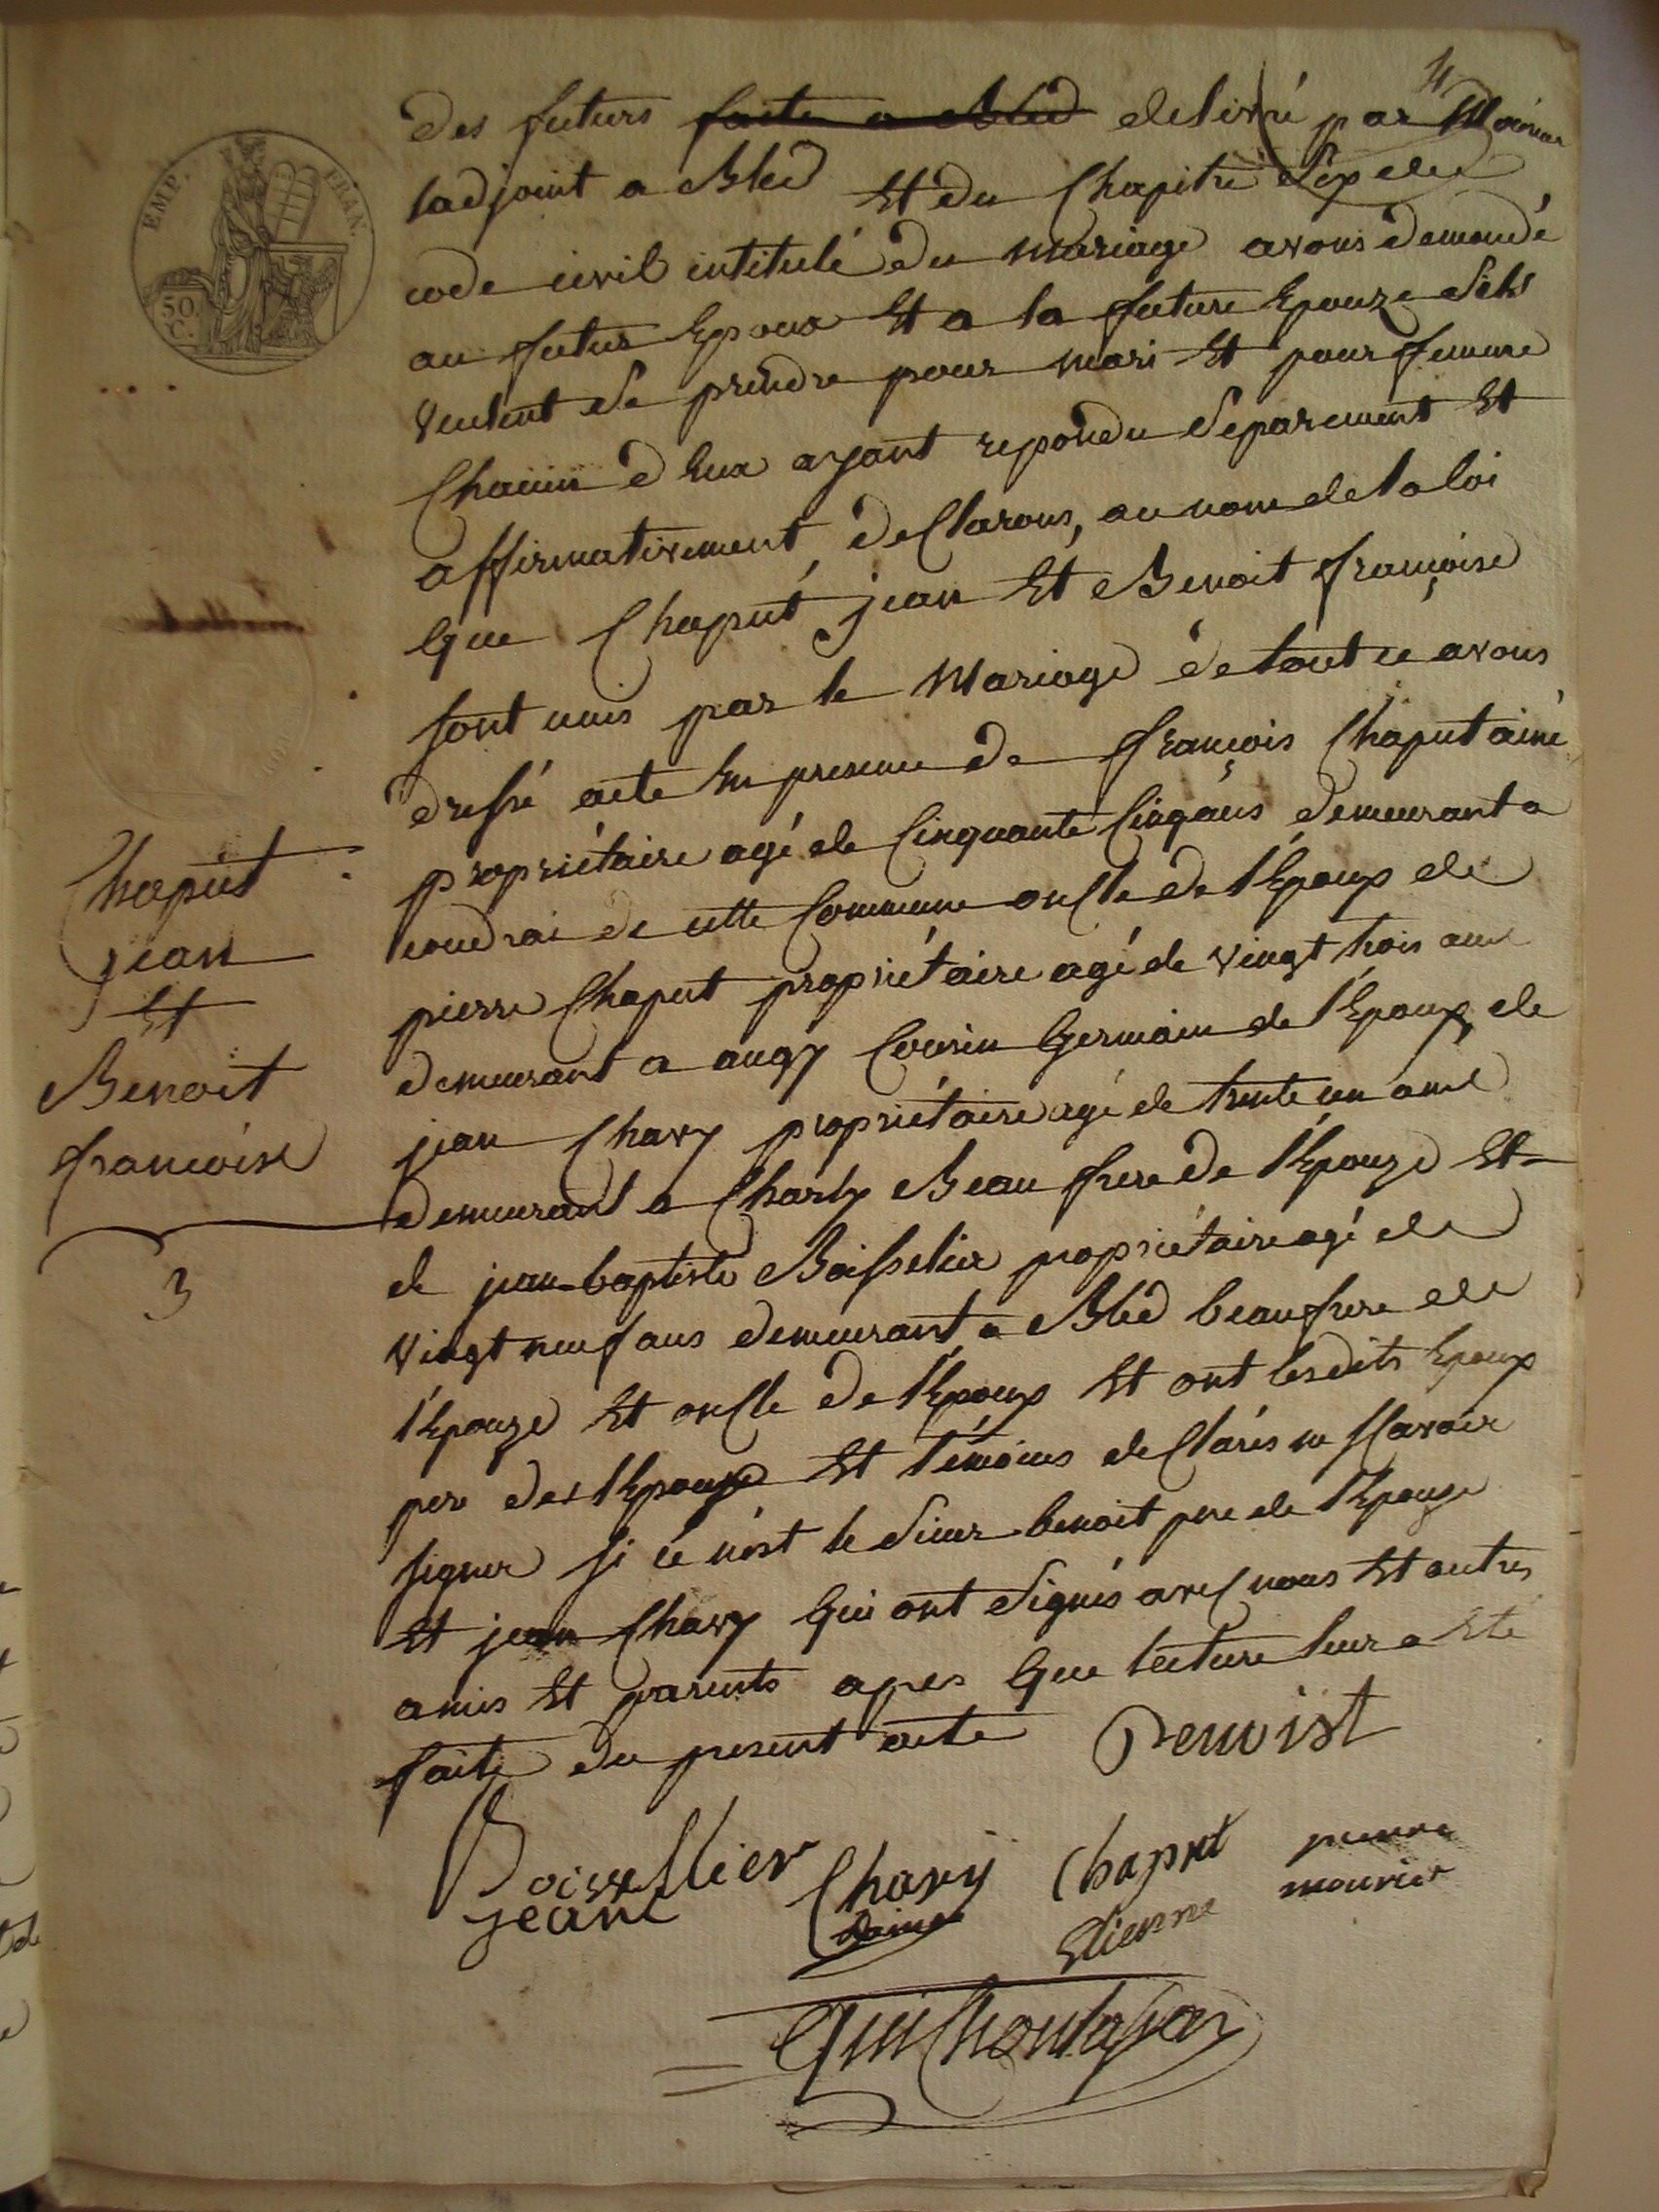 4
EMP. FRAN.
50 C.
des futurs faite a Bled delivré par
ladjoint a Bled Et du Chapitre Six de
code civil intitulé du mariage avons demandé
au futur Epoux Et a la future Epouze Sils
veulent se prendre pour mari Et pour femme
Chacun d Eux ayant repondu Separement Et
affirmativement, deClarons, au nom de la loi
que Chaput jean Et Benoit françoise
sont unis par le Mariage de tout ce avons
dressé acte En presence de françois Chaput ainé
propriétaire agé de Cinquante Cinq ans demeurant a
coudrai de cette Commune onCle de l'Epoux de
pierre Chaput propriétaire agé de vingt trois ans
demeurant a augy Cousin Germain de l'Epoux, de
jean Chavy propriétaire agé de trente un ans
demeurant a Charly Beau frere de l'Epouze Et
de jean-baptiste Boisselier propriétaire agé de
vingt neuf ans demeurant a Bled beau frere de
l'Epouze Et onCle de l'Epoux Et ont lesdits Epoux
pere des l'Epoux Et témoins deClarés ne sCavoir
signer si ce n'est le Sieur benoit pere de l'Epouze
Et jean Chavy Qui ont Signés aveC nous Et autres
amis Et parents apes Que lecture leur a Eté
faite du present acte
Chaput
jean
Et
Benoit
francoise
3
Benoist
Boissellier
jean
Chavy
Chaput
Etienne
pierre
mourier